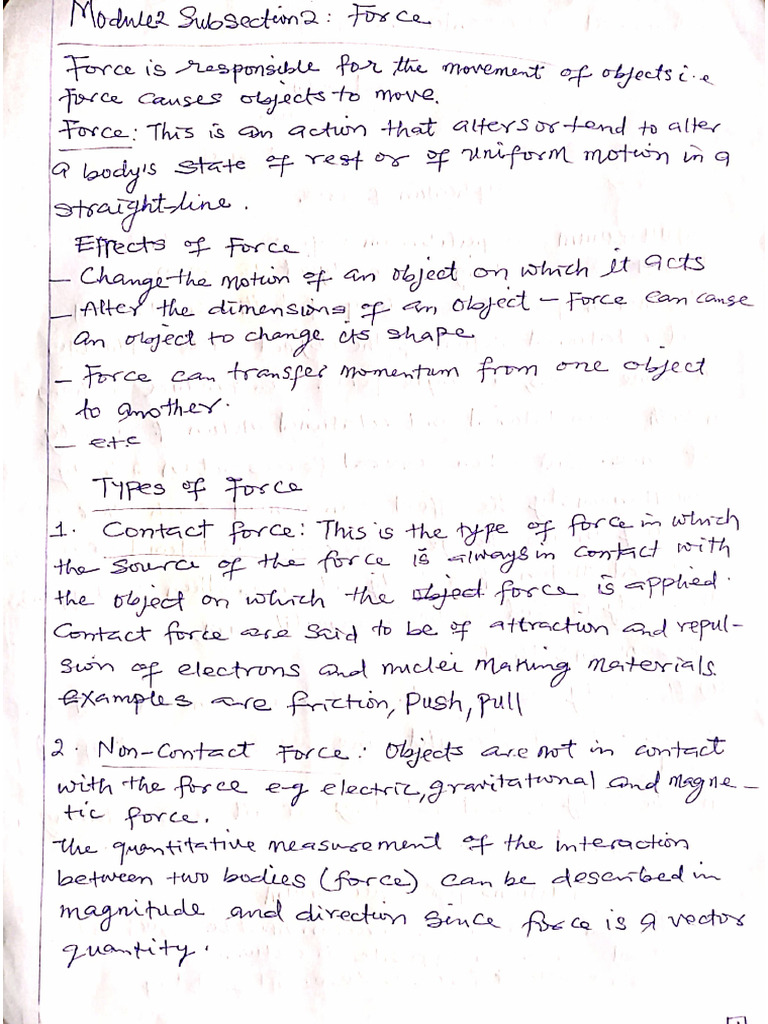 Module2 Subsection2: Force
Force is responsible for the movement of objects i.e
Force causes objects to move.
Force: This is an action that alters or tend to alter
a body's state of rest or of uniform motion in a
straight-line.
Effects of Force
- Change the motion of an object on which it acts
- Alter the dimensions of an object - Force can cause
an object to change its shape
- Force can transfer momentum from one object
to another.
- e.t.c
Types of Force
1. Contact force: This is the type of force in which
the source of the force is always in contact with
the object on which the object force is applied.
Contact force are said to be of attraction and repul-
sion of electrons and nuclei making materials.
Examples are friction, push, pull
2. Non-Contact Force: Objects are not in contact
with the force e-g electric, gravitational and magne-
tic force.
The quantitative measurement of the interaction
between two bodies (force) can be described in
magnitude and direction since force is a vector
quantity.
1